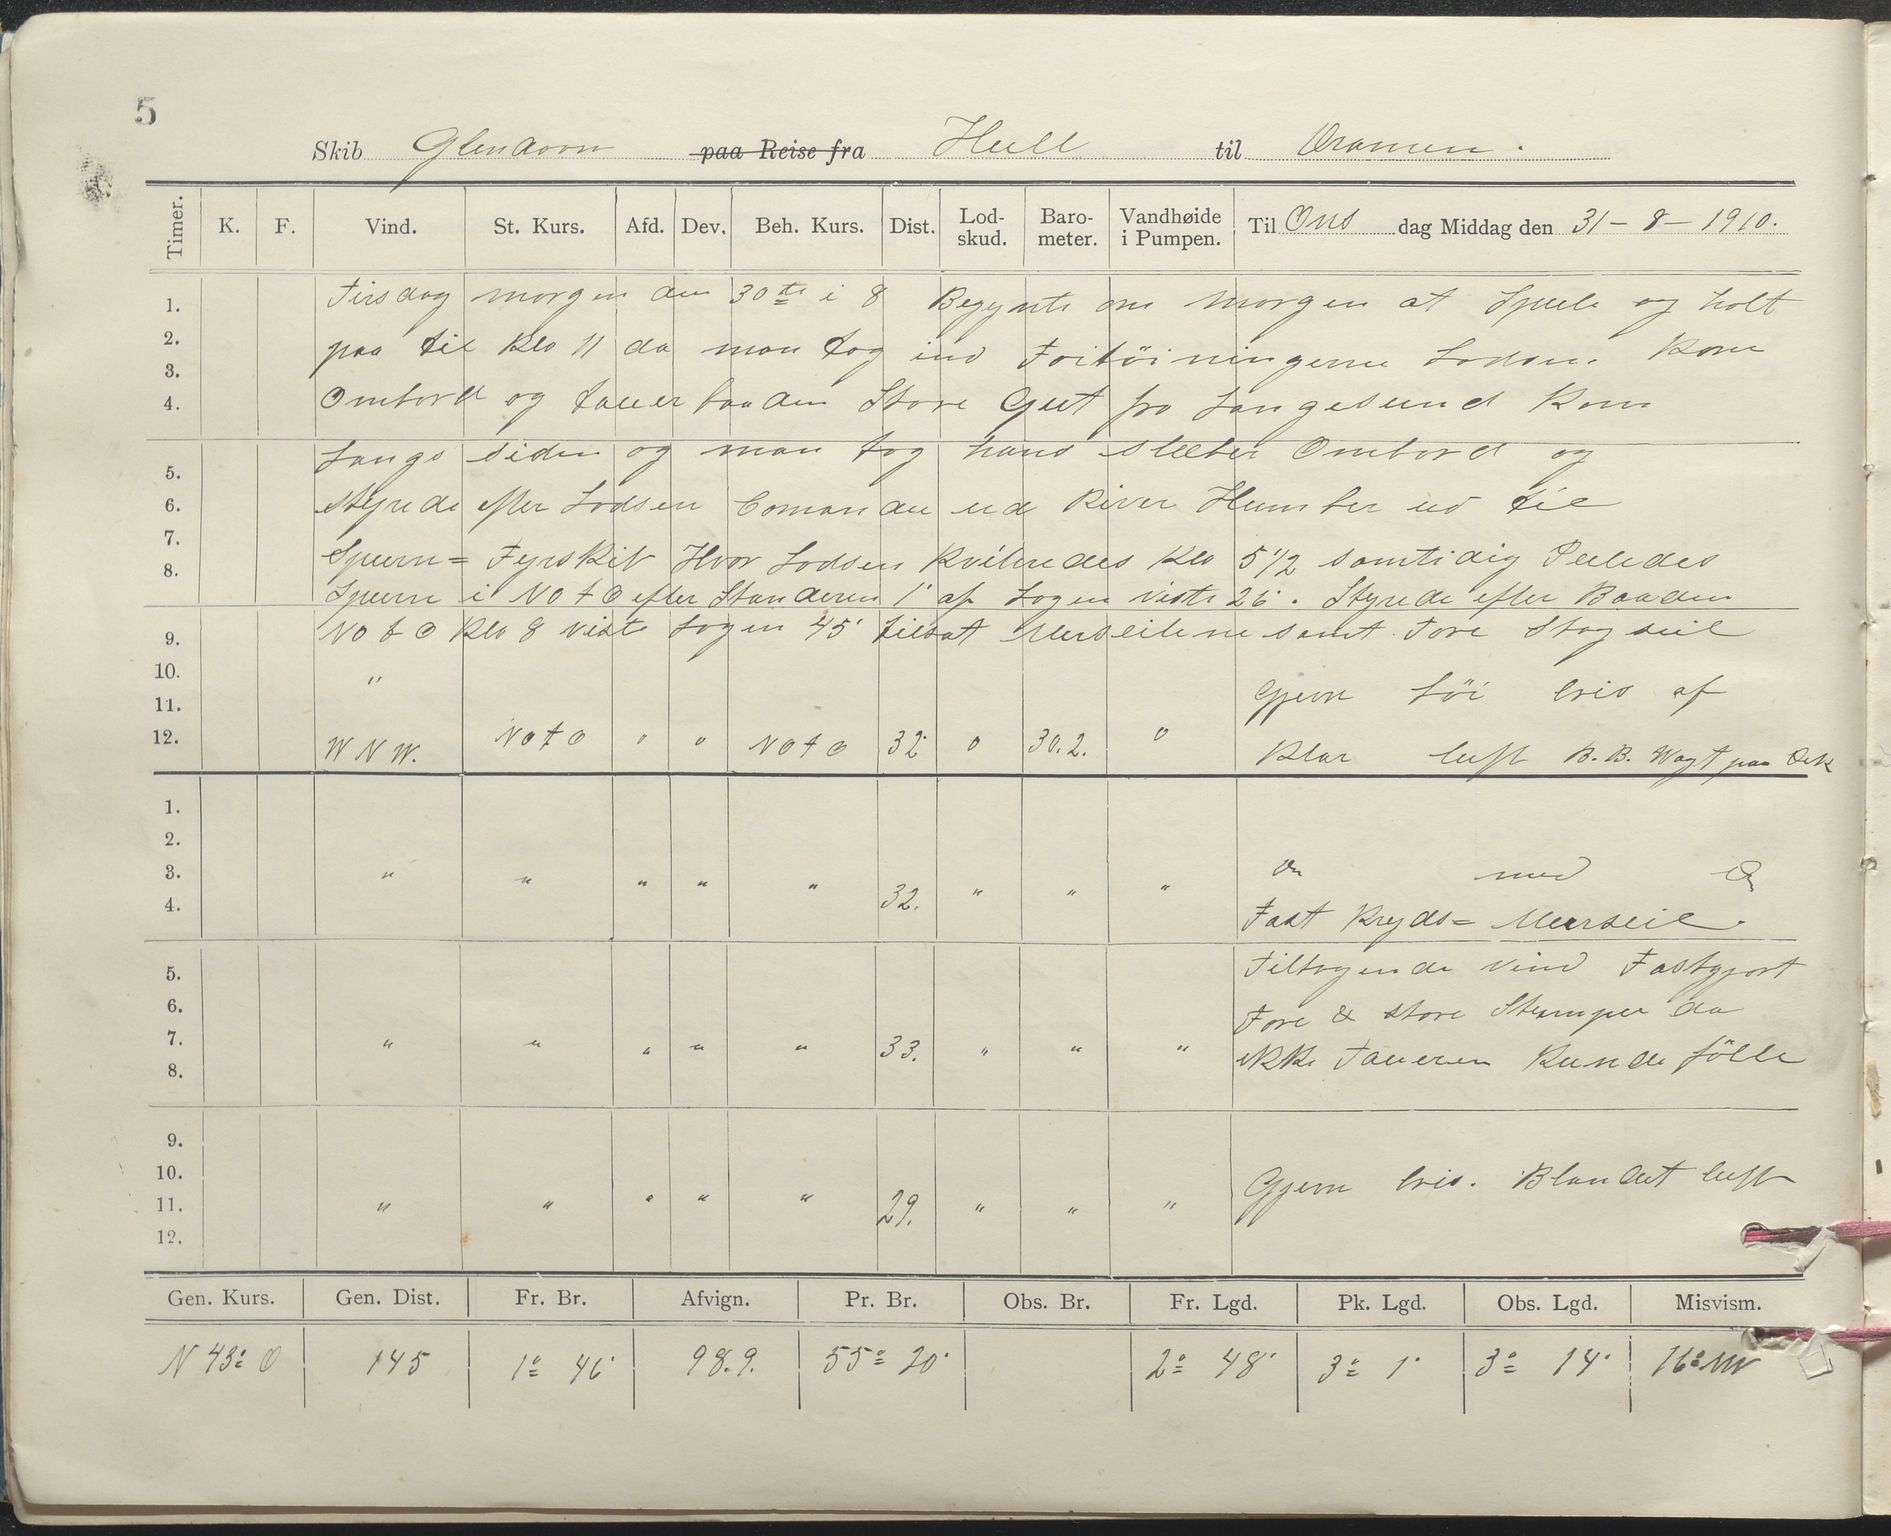 5
Skib Glenavon paa Reise fra Hull til Dramen.
Timer. K. F. Vind. St. Kurs. Afd. Dev. Beh. Kurs. Dist. Lod-skud. Baro-meter. Vandhøide i Pumpen. Til Ons dag Middag den 31-8-1910.
1. Tirsdag morgen den 30te i 8 Begynte om morgen at Spule og holt
2. paa til Klo 11 da man tog ind Foitöiningerne Lodsen Kom
3.
4. Ombord og tauerbaaden Store Gut fra Langesund Kom
Langs siden og man tog hans sleeber Ombord og
5.
6. styrede efter Lodsen Comande ud River Humber ud til
7.
8. Spurn= Fyrskib Hvor Lodsen Kvitredes Klo 5 1/2 samtidig Peiledes
Spurn i NOtO efter Standeren 1' af Logen viste 26'. Styrede efter Baaden
9. NOtO Klo 8 viste Logen 45' tilsat Merseilene samt Fore Stagseil
10. " Gjevn Löi bris af
11.
12. WNW. NOtO 0 0 NOtO 32' 0 30.2. 0 Klar luft B.B. Vagt paa Dek
1.
2.
3. " " " " " " " " Do med Do
4. 32. Fast Kryds= Merseil.
5. Tiltagende vind Fastgjort
6. Fore & store Stumper da
7. " " " " " 33. " " " ikke Taueren Kunde fölle
8.
9.
10. Gjevn bris. Blandet luft
11. " " " " " 29. " " "
12.
Gen. Kurs. Gen. Dist. Fr. Br. Afvign. Pr. Br. Obs. Br. Fr. Lgd. Pk. Lgd. Obs. Lgd. Misvism.
N 43° O 145 1° 46' 98.9. 55° 20' 2° 48' 3° 1' 3° 14' 16° NV